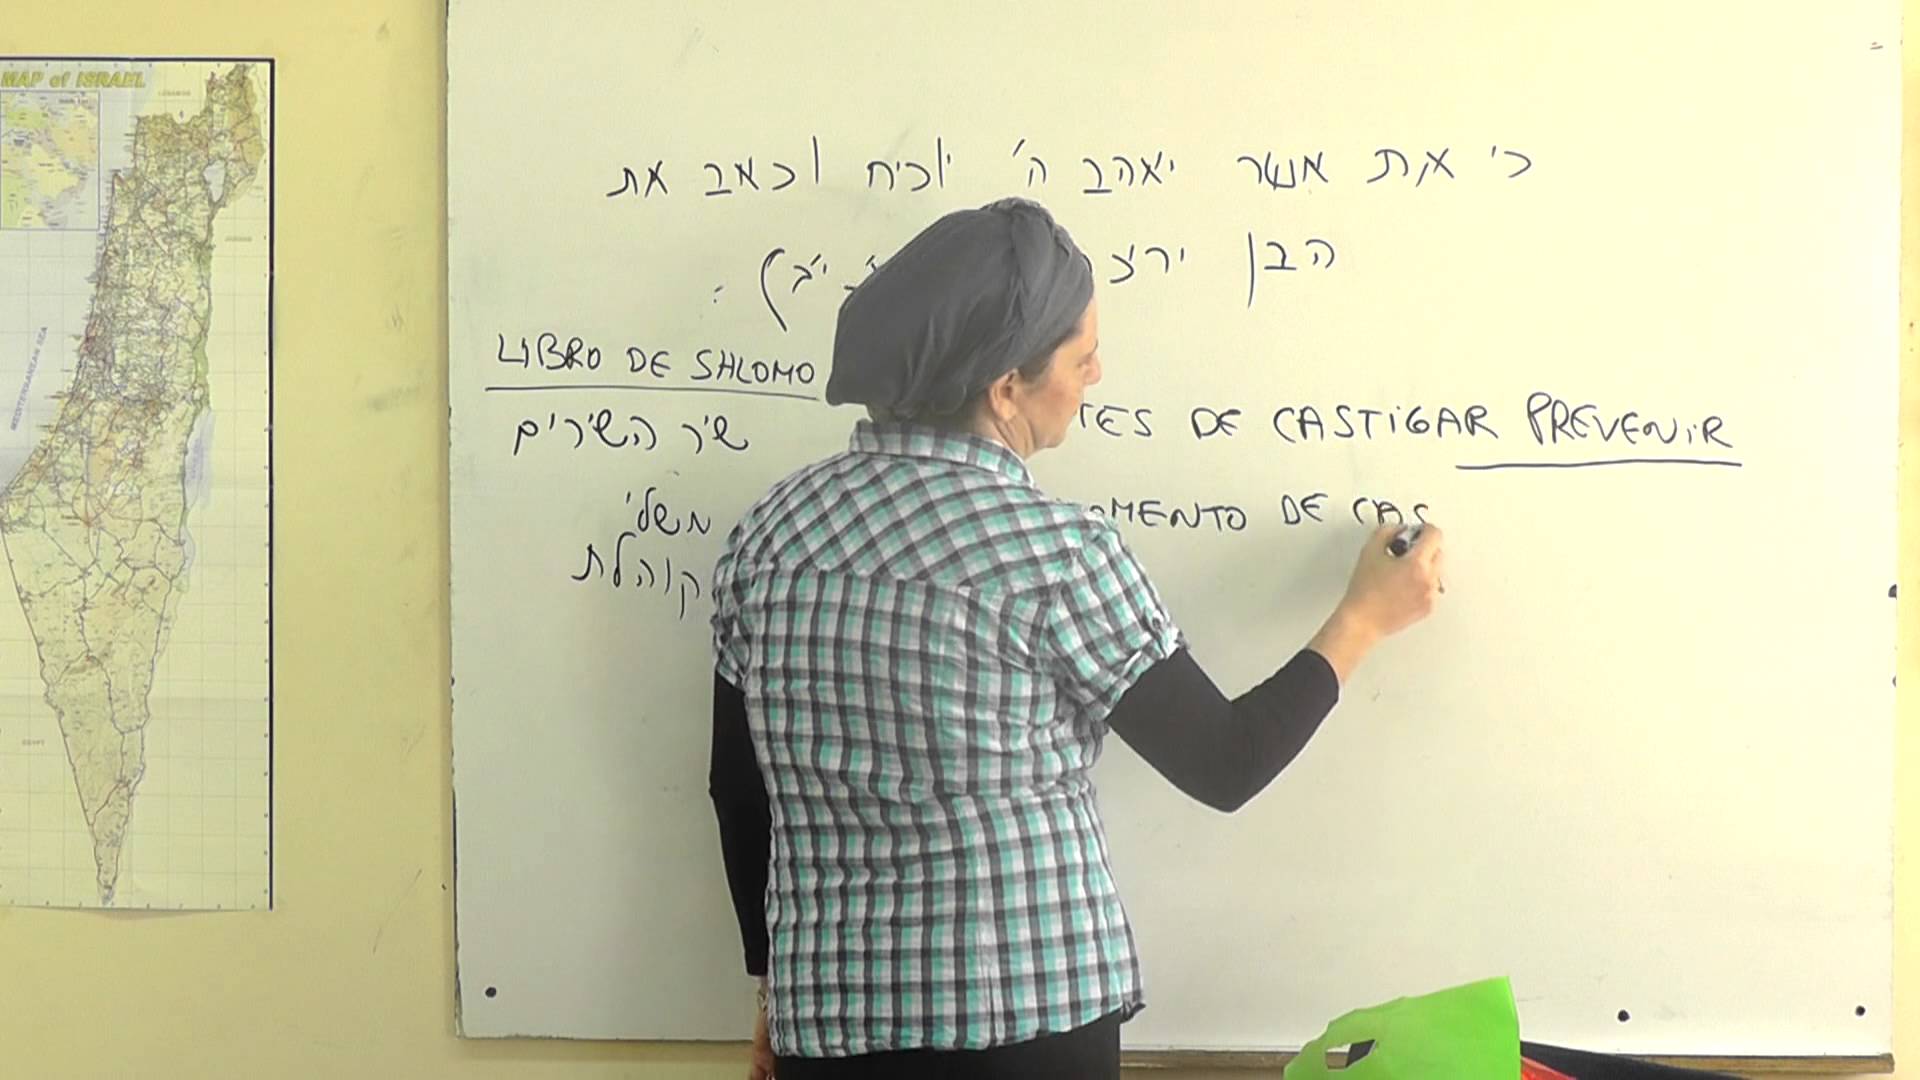 MAP of ISRAEL
LEBANON
MEDITERRANEAN SEA
EGYPT
כי את אשר יאהב ה' יוכיח וכאב את
הבן ירצ
LIBRO DE SHLOMO
שיר השירים
משלי
קוהלת
TES DE CASTIGAR PREVENIR
OMENTO DE CAS